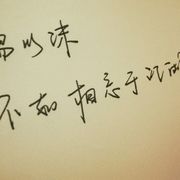 以沫
不如相忘于江